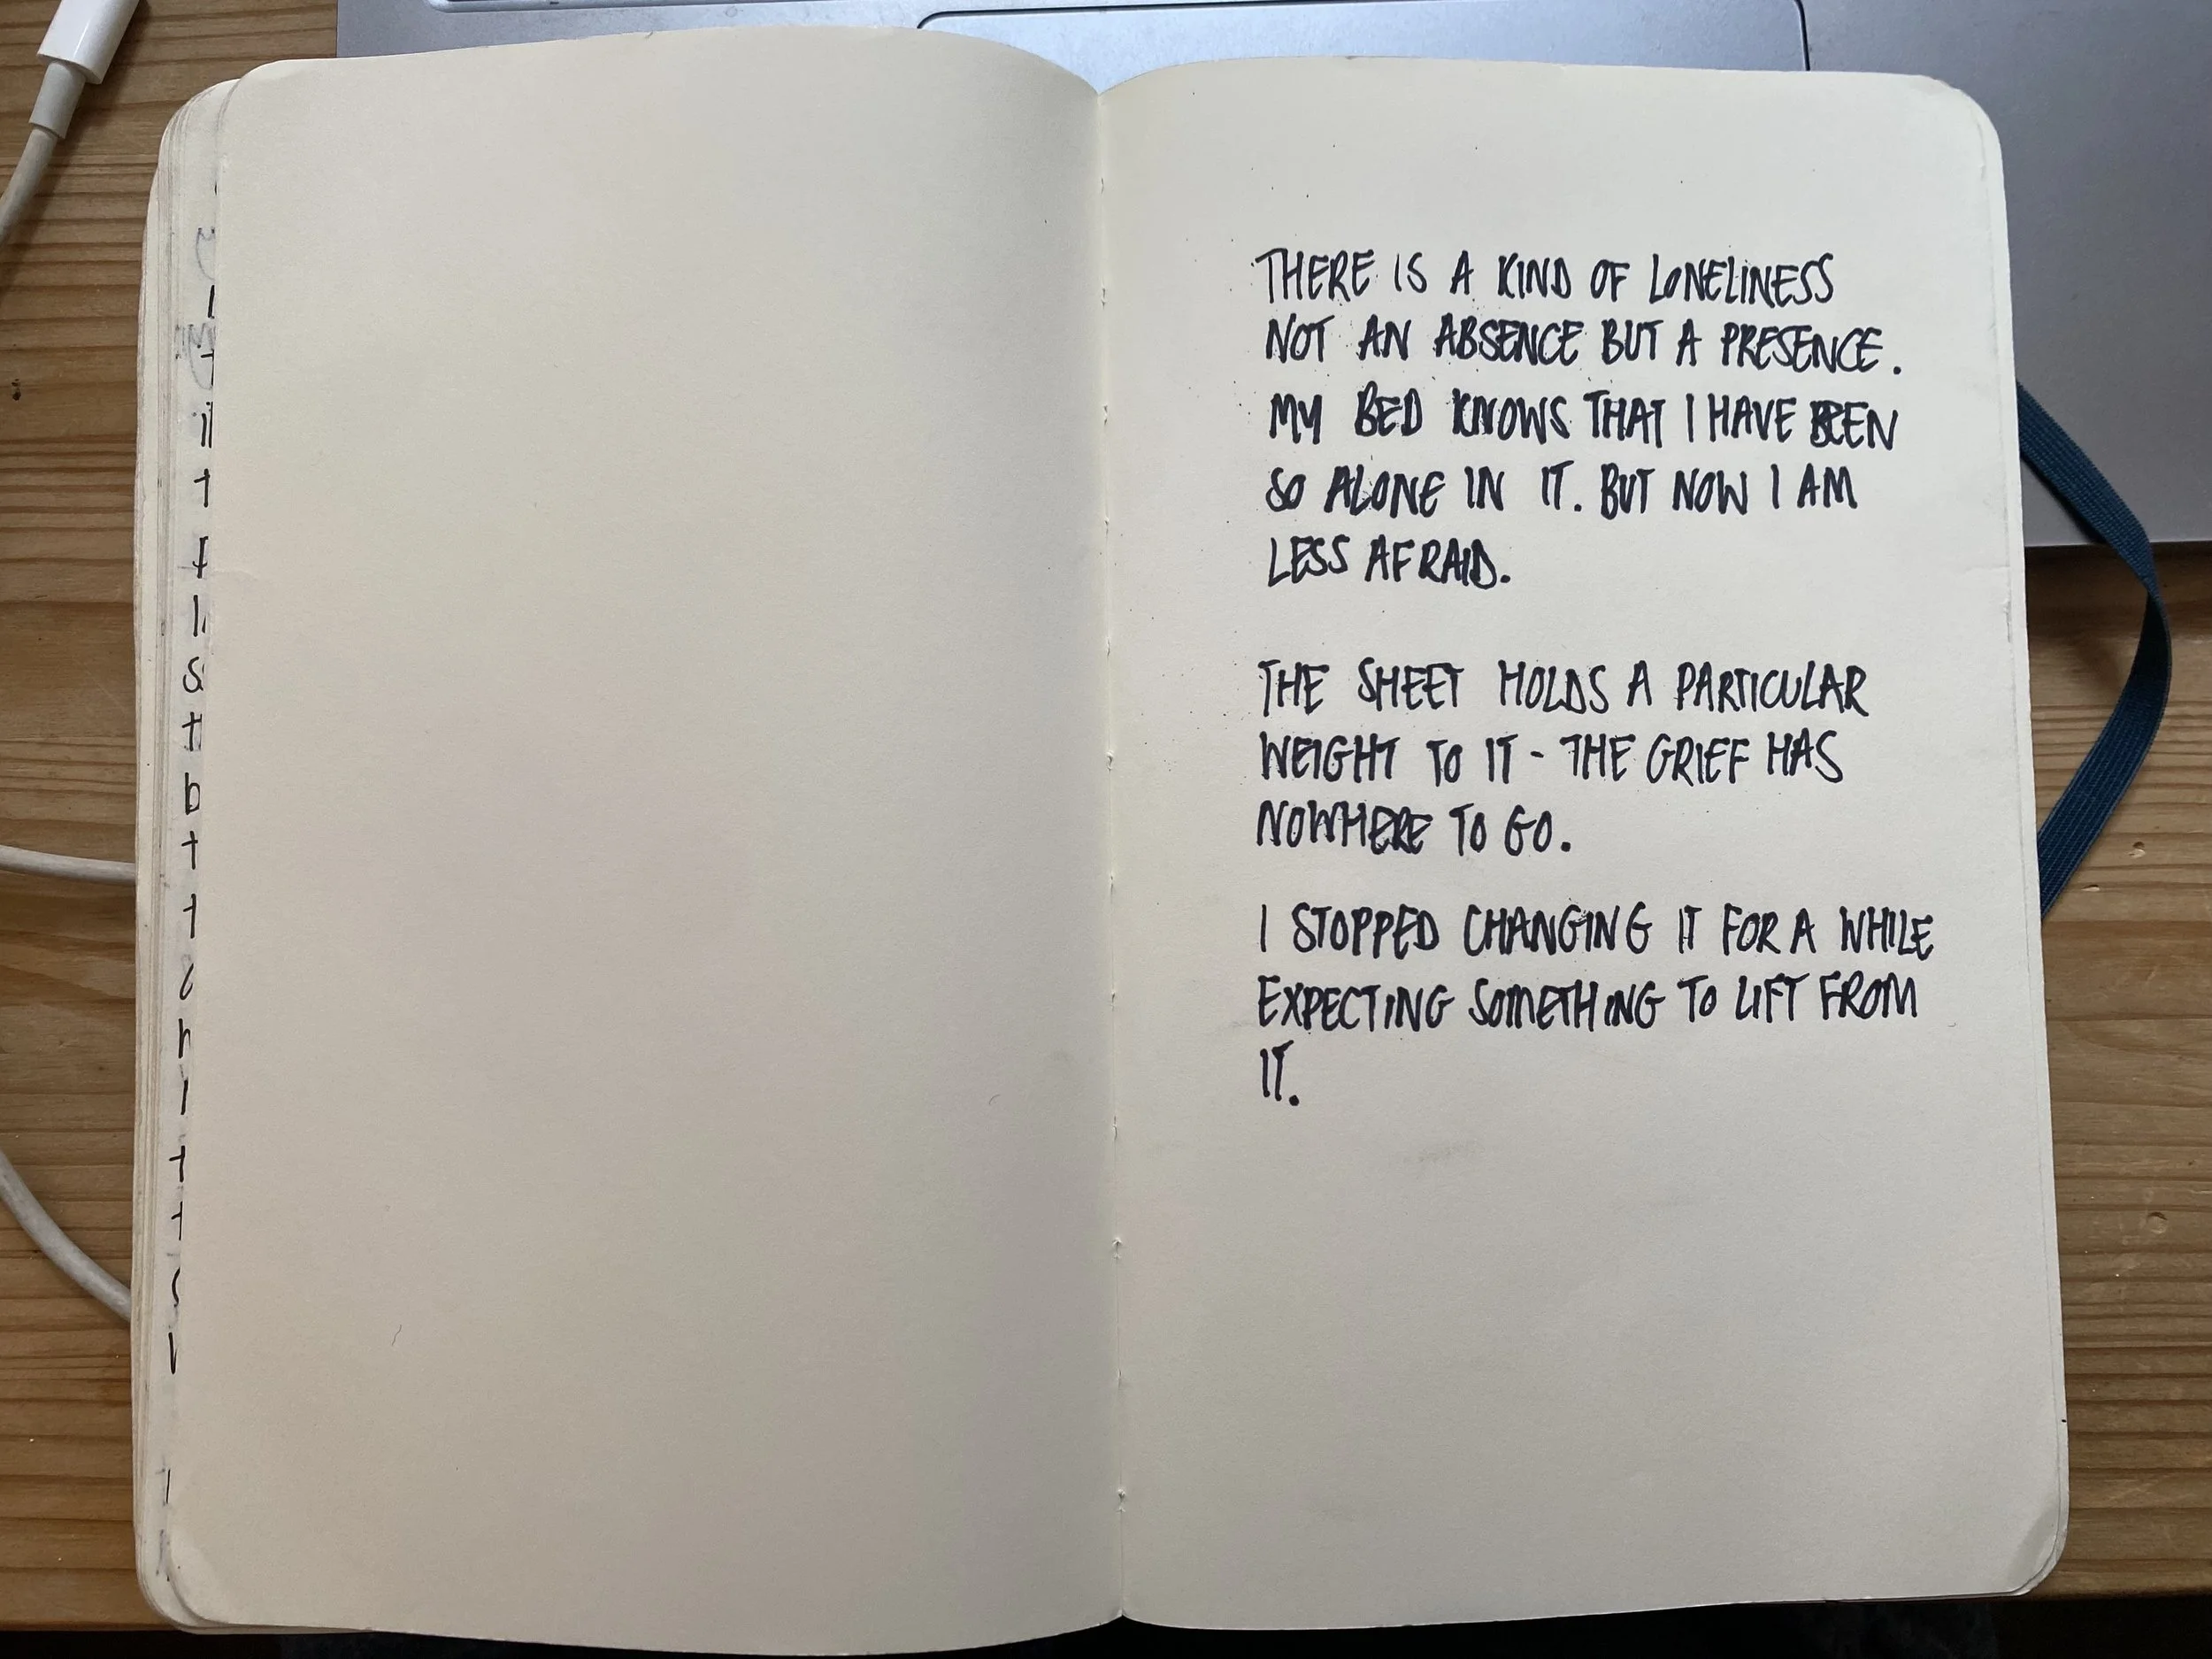 THERE IS A KIND OF LONELINESS
NOT AN ABSENCE BUT A PRESENCE.
MY BED KNOWS THAT I HAVE BEEN
SO ALONE IN IT. BUT NOW I AM
LESS AFRAID.
THE SHEET HOLDS A PARTICULAR
WEIGHT TO IT - THE GRIEF HAS
NOWHERE TO GO.
I STOPPED CHANGING IT FOR A WHILE
EXPECTING SOMETHING TO LIFT FROM
IT.